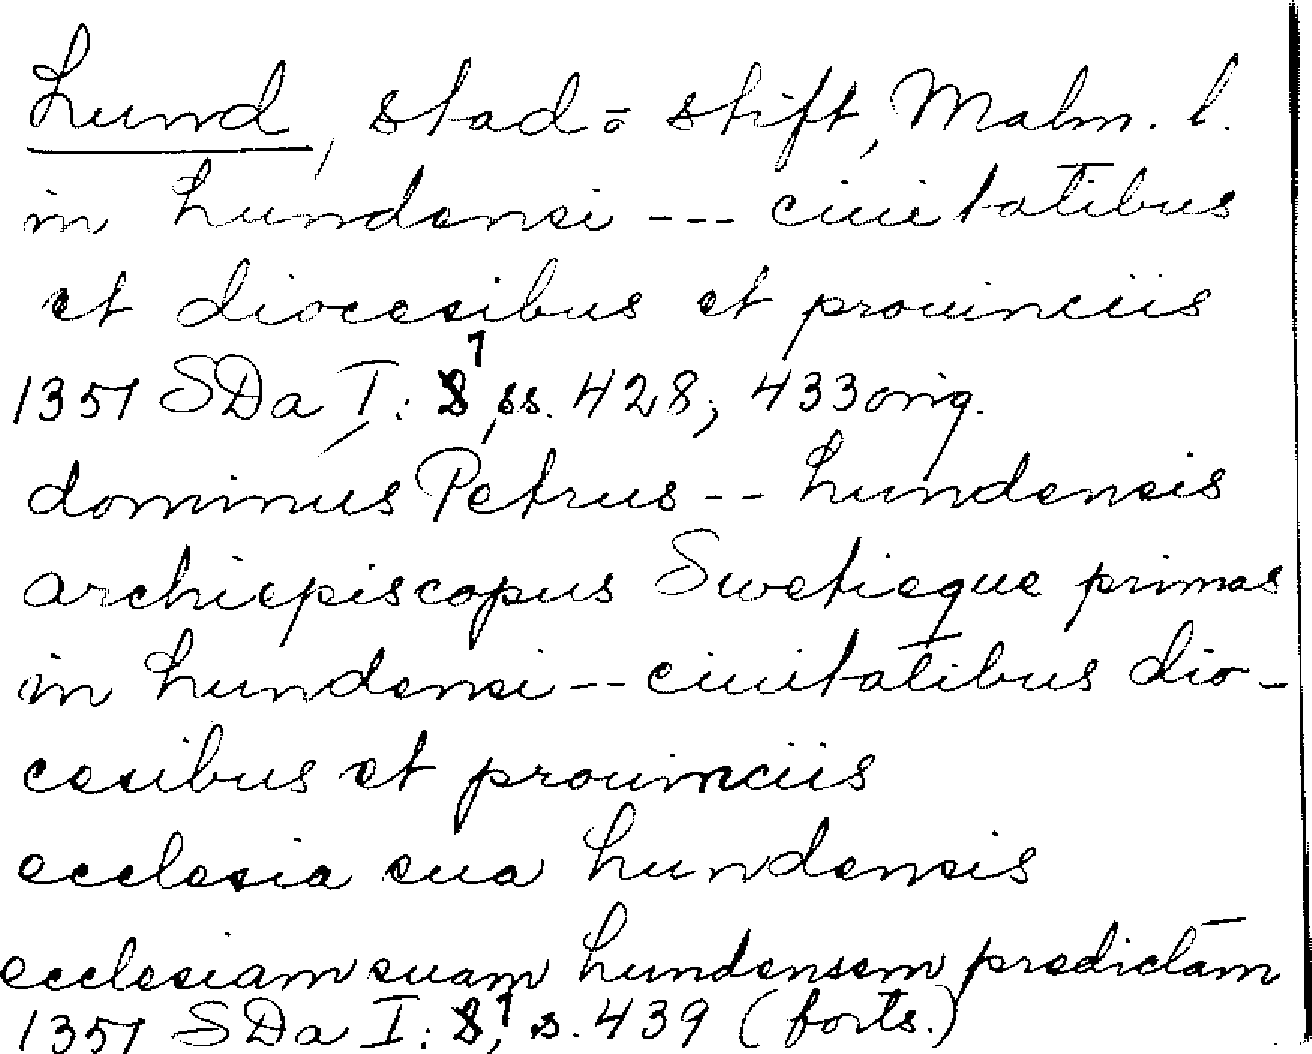 Lund, stad o stift, Malm. l.
in Lundensi --- ciuitatibus
et diocesibus et prouinciis
1351 SDa I: 1, ss. 428, 433 orig.
dominus Petrus -- Lundensis
archiepiscopus Swetieque primas
in Lundensi -- ciuitatibus dio-
cesibus et prouinciis
ecclesia sua Lundensis
ecclesiam suam Lundensem predictam
1351 SDa I: 1, s. 439 (forts.)